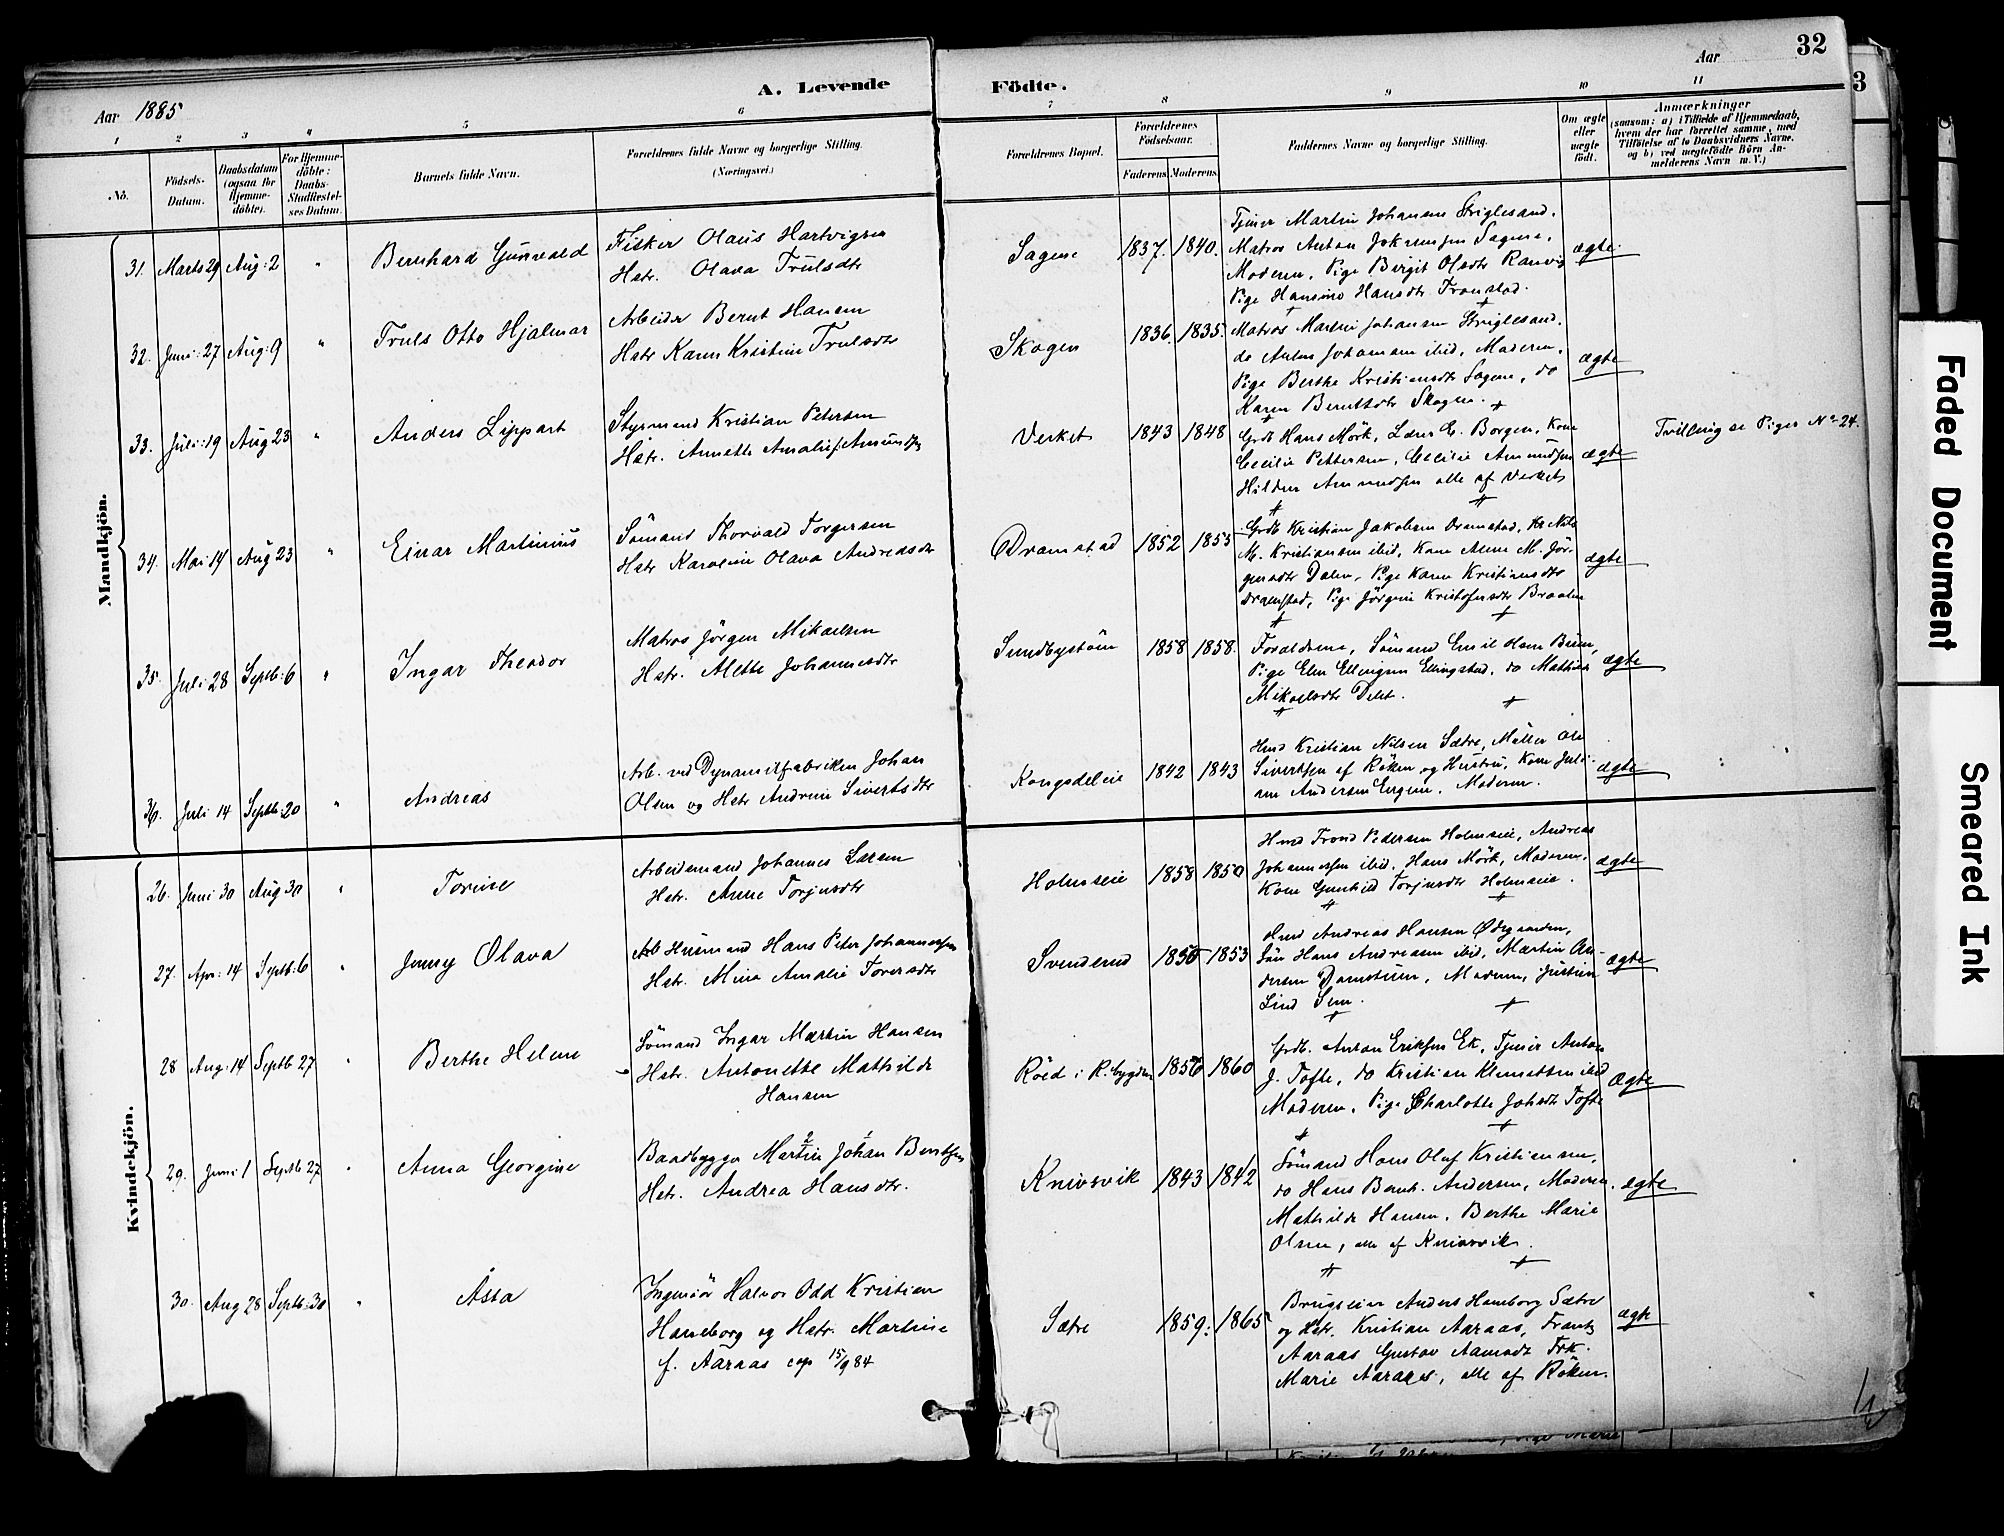 32
Aar 1885
A. Levende
Födte.
Aar
1
2
3
4
5
6
7
8
9
10
11
No.
Födsels-
Datum.
Daabsdatum
(ogsaa for
Hjemme-
döbte).
For Hjemme-
döbte:
Daabs-
Stadfæstel-
ses Datum.
Barnets fulde Navn.
Forældrenes fulde Navne og borgerlige Stilling.
(Næringsvei.)
Forældrenes Bopæl.
Forældrenes
Födselsaar.
Faderens. Moderens.
Faddernes Navne og borgerlige Stilling.
Om ægte
eller
uægte
født.
Anmærkninger
(saasom: a) i Tilfælde af Hjemmedaab,
hvem der har forrettet samme, med
Tilföielse af to Daabsvidners Navne.
og b) ved uægtefödte Börn An-
melderens Navn m. V.)
Mandkjön.
31. Marts 29 Aug: 2 " Bernhard Gunvald
Fisker Olaus Hartvigsen
Hstr. Olava Trulsdtr
Sagene 1837. 1840.
Tjener Martin Johansen Striglesand.
Matros Anton Johansen Sagene,
Moderen, Pige Birgit Olsdtr Ramvig
Pige Hansine Hansdtr Tronstad.
ægte
32. Juni: 27 Aug: 9 " Truls Otto Hjalmar
Arbeider Bernt Hansen
Hstr Karen Kristine Trulsdtr
Skogen 1836. 1835.
Matros Martin Johansen Striglesand.
do Anton Johansen ibid, Moderen,
Pige Berthe Kristiansdtr Sagene, do
Karen Berntsdtr Skogen.
ægte
33. Juli: 19 Aug 23 " Anders Lippart
Styrmand Kristian Petersen
Hstr. Annette Amalie f. Amundsen
Verket 1843 1848
Grdb Hans Mörk, Lærer E. Borgen, Kone
Cecilie Pettersen, Cecilie Amundsen
Hilden Amundsen alle af Verket
ægte
Tvilling se Piger No 24.
34. Mai 14 Aug 23 " Einar Martinius
Sömand Thorvald Torgersen
Hstr Karoline Olava Andreasdtr
Dramstad 1852 1853
Grdb Kristian Jakobsen Dramstad, Kr Nils
M. Kristiansen ibid, Kone Anne M. Jör-
gensdtr Dalen, Pige Karen Kristiansdtr
Dramstad, Pige Jörgine Kristofersdtr Braaten
ægte
35. Juli 28 Septb: 6 " Ingar Theodor
Matros Jörgen Mikaelsen
Hstr. Alette Johannesdtr
Sundbystöen 1858 1858.
Forældrene, Sömand Emil Hans Buen,
Pige Elen Ellingsen Ellingstad, do Mathilde
Mikaelsdtr Delet.
ægte
36. Juli 14 Septb: 20 " Andreas
Arb. ved Dynamitfabriken Johan
Olsen og Hstr Andrine Sivertsdtr
Kongsdeleie 1842 1843
Hmd Kristian Nilsen Sætre, Möller Ole
Sivertsen af Röken og Hustru, Kone Juli-
ane Andersen Engene. Moderen.
ægte
Kvindekjön.
26. Juni 30 Aug 30 " Torine
Arbeidsmand Johannes Larsen
Hstr. Anne Torjusdtr
Holmseie 1858 1850
Hmd Trond Pedersen Holmseie, Andreas
Johannessen ibid, Hans Mörk, Moderen,
Kone Gunhild Torjusdtr Holmseie.
ægte
27. Apr: 14 Septb: 6 " Jenny Olava
Arb Husmand Hans Peter Johannessen
Hstr. Mina Amalie Toversdtr
Svenderud 1856 1853
Hmd Andreas Hansen Ødegaarden,
Sön Hans Andreasen ibid, Martin An-
dersen Damstuen, Moderen, Justine
Lind Sem.
ægte
28 Aug: 14 Septb 27 " Berthe Helene
Sömand Ingar Martin Hansen
Hstr. Antonette Mathilde
Hansen
Röed i R. bygden 1856 1860
Grdb. Anton Eriksen Ek, Tjener Anton
J. Tofte, do Kristian Klemetsen ibid
Moderen, Pige Charlotte Johsdtr Tofte
Ægte
29. Juni 1 Septb 27 " Anna Georgine
Baadbygger Martin Johan Berntsen
Hstr. Andrea Hansdtr.
Knivsvik 1843 1842
Sömand Hans Olaf Kristiansen,
do Hans Bernh. Andersen, Moderen.
Mathilde Hansen, Berthe Marie
Olsen, alle af Knivsvik.
ægte
30. Aug 28 Septb: 30 " Åsta
Ingeniör Halvor Odd Kristian
Haneborg og Hstr. Martine
f. Aaraas cop 15/9 84
Sætre 1859. 1865
Brugseier Anders Haneborg Sætre
og Hstr. Kristian Aaraas, Frantz
Aaraas Gustav Aamodt Frk.
Marie Aaraas, alle af Röken.
ægte
Faded Document
Smeared Ink